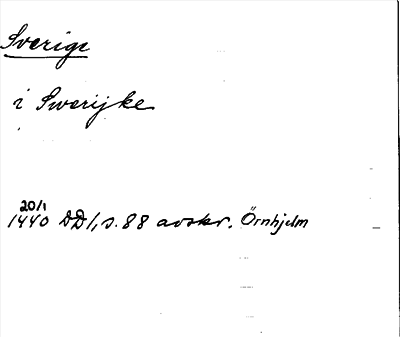 Sverige
i Swerijke
20/1
1440 DD1, s. 88 avskr. Örnhjelm